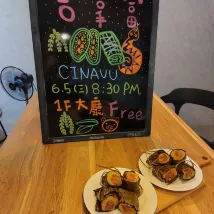 CINAVU
6.5(三) 8:30 PM
1F 大廳 Free